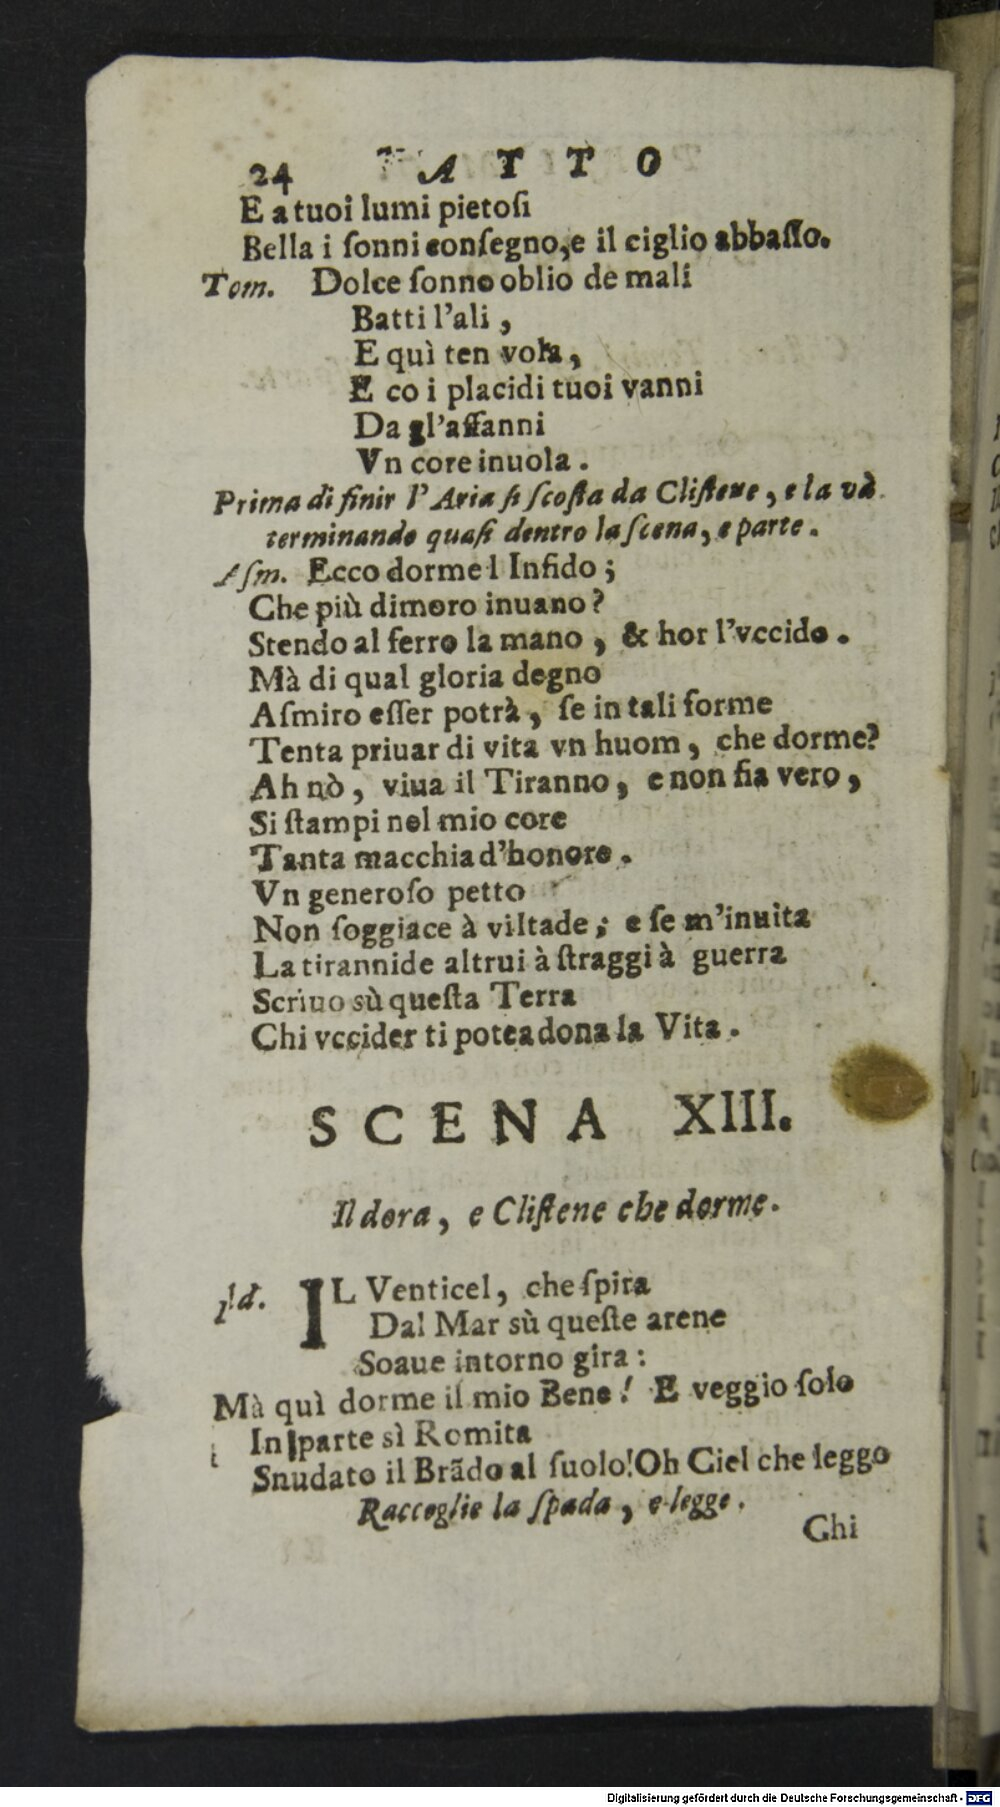 24 ATTO
E a tuoi lumi pietoſi
Bella i ſonni conſegno, e il ciglio abbaſſo.
Tom. Dolce ſonno oblio de mali
Batti l'ali,
E quì ten vola,
E co i placidi tuoi vanni
Da gl'affanni
Vn core inuola.
Prima di finir l'Aria ſi ſcoſta da Cliſtene, e la và
terminando quaſi dentro la ſcena, e parte.
Aſm. Ecco dorme l Infido;
Che più dimoro inuano?
Stendo al ferro la mano, & hor l'vccido.
Mà di qual gloria degno
Aſmiro eſſer potrà, ſe in tali forme
Tenta priuar di vita vn huom, che dorme?
Ah nò, viua il Tiranno, e non fia vero,
Si ſtampi nel mio core
Tanta macchia d'honore.
Vn generoſo petto
Non ſoggiace à viltade; e ſe m'inuita
La tirannide altrui à ſtraggi à guerra
Scriuo sù queſta Terra
Chi vccider ti potea dona la Vita.
SCENA XIII.
Il dora, e Cliſtene che dorme.
Ild. IL Venticel, che ſpira
Dal Mar sù queſte arene
Soaue intorno gira:
Mà quì dorme il mio Bene! E veggio ſolo
In parte sì Romita
Snudato il Brãdo al ſuolo! Oh Ciel che leggo
Raccoglie la ſpada, e legge.
Chi
Digitalisierung gefördert durch die Deutsche Forschungsgemeinschaft - DFG